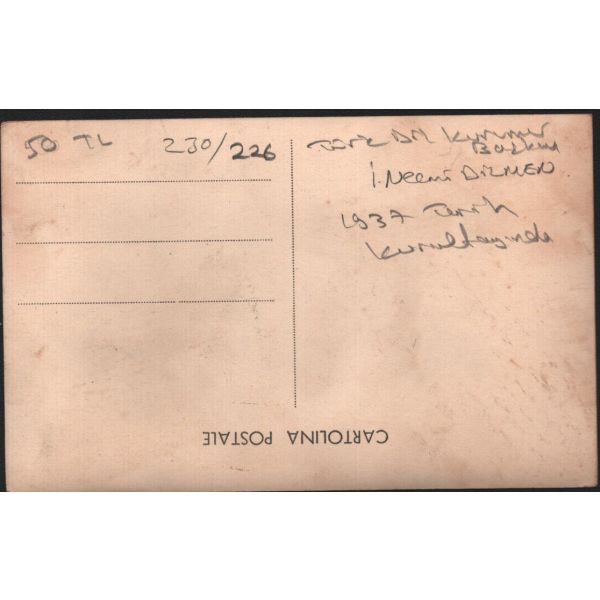 50 TL 230/226
Türk Dil Kurumu
Başkanı
İ. Necmi DİLMEN
1937 Tarih
Kurultayında
CARTOLINA POSTALE